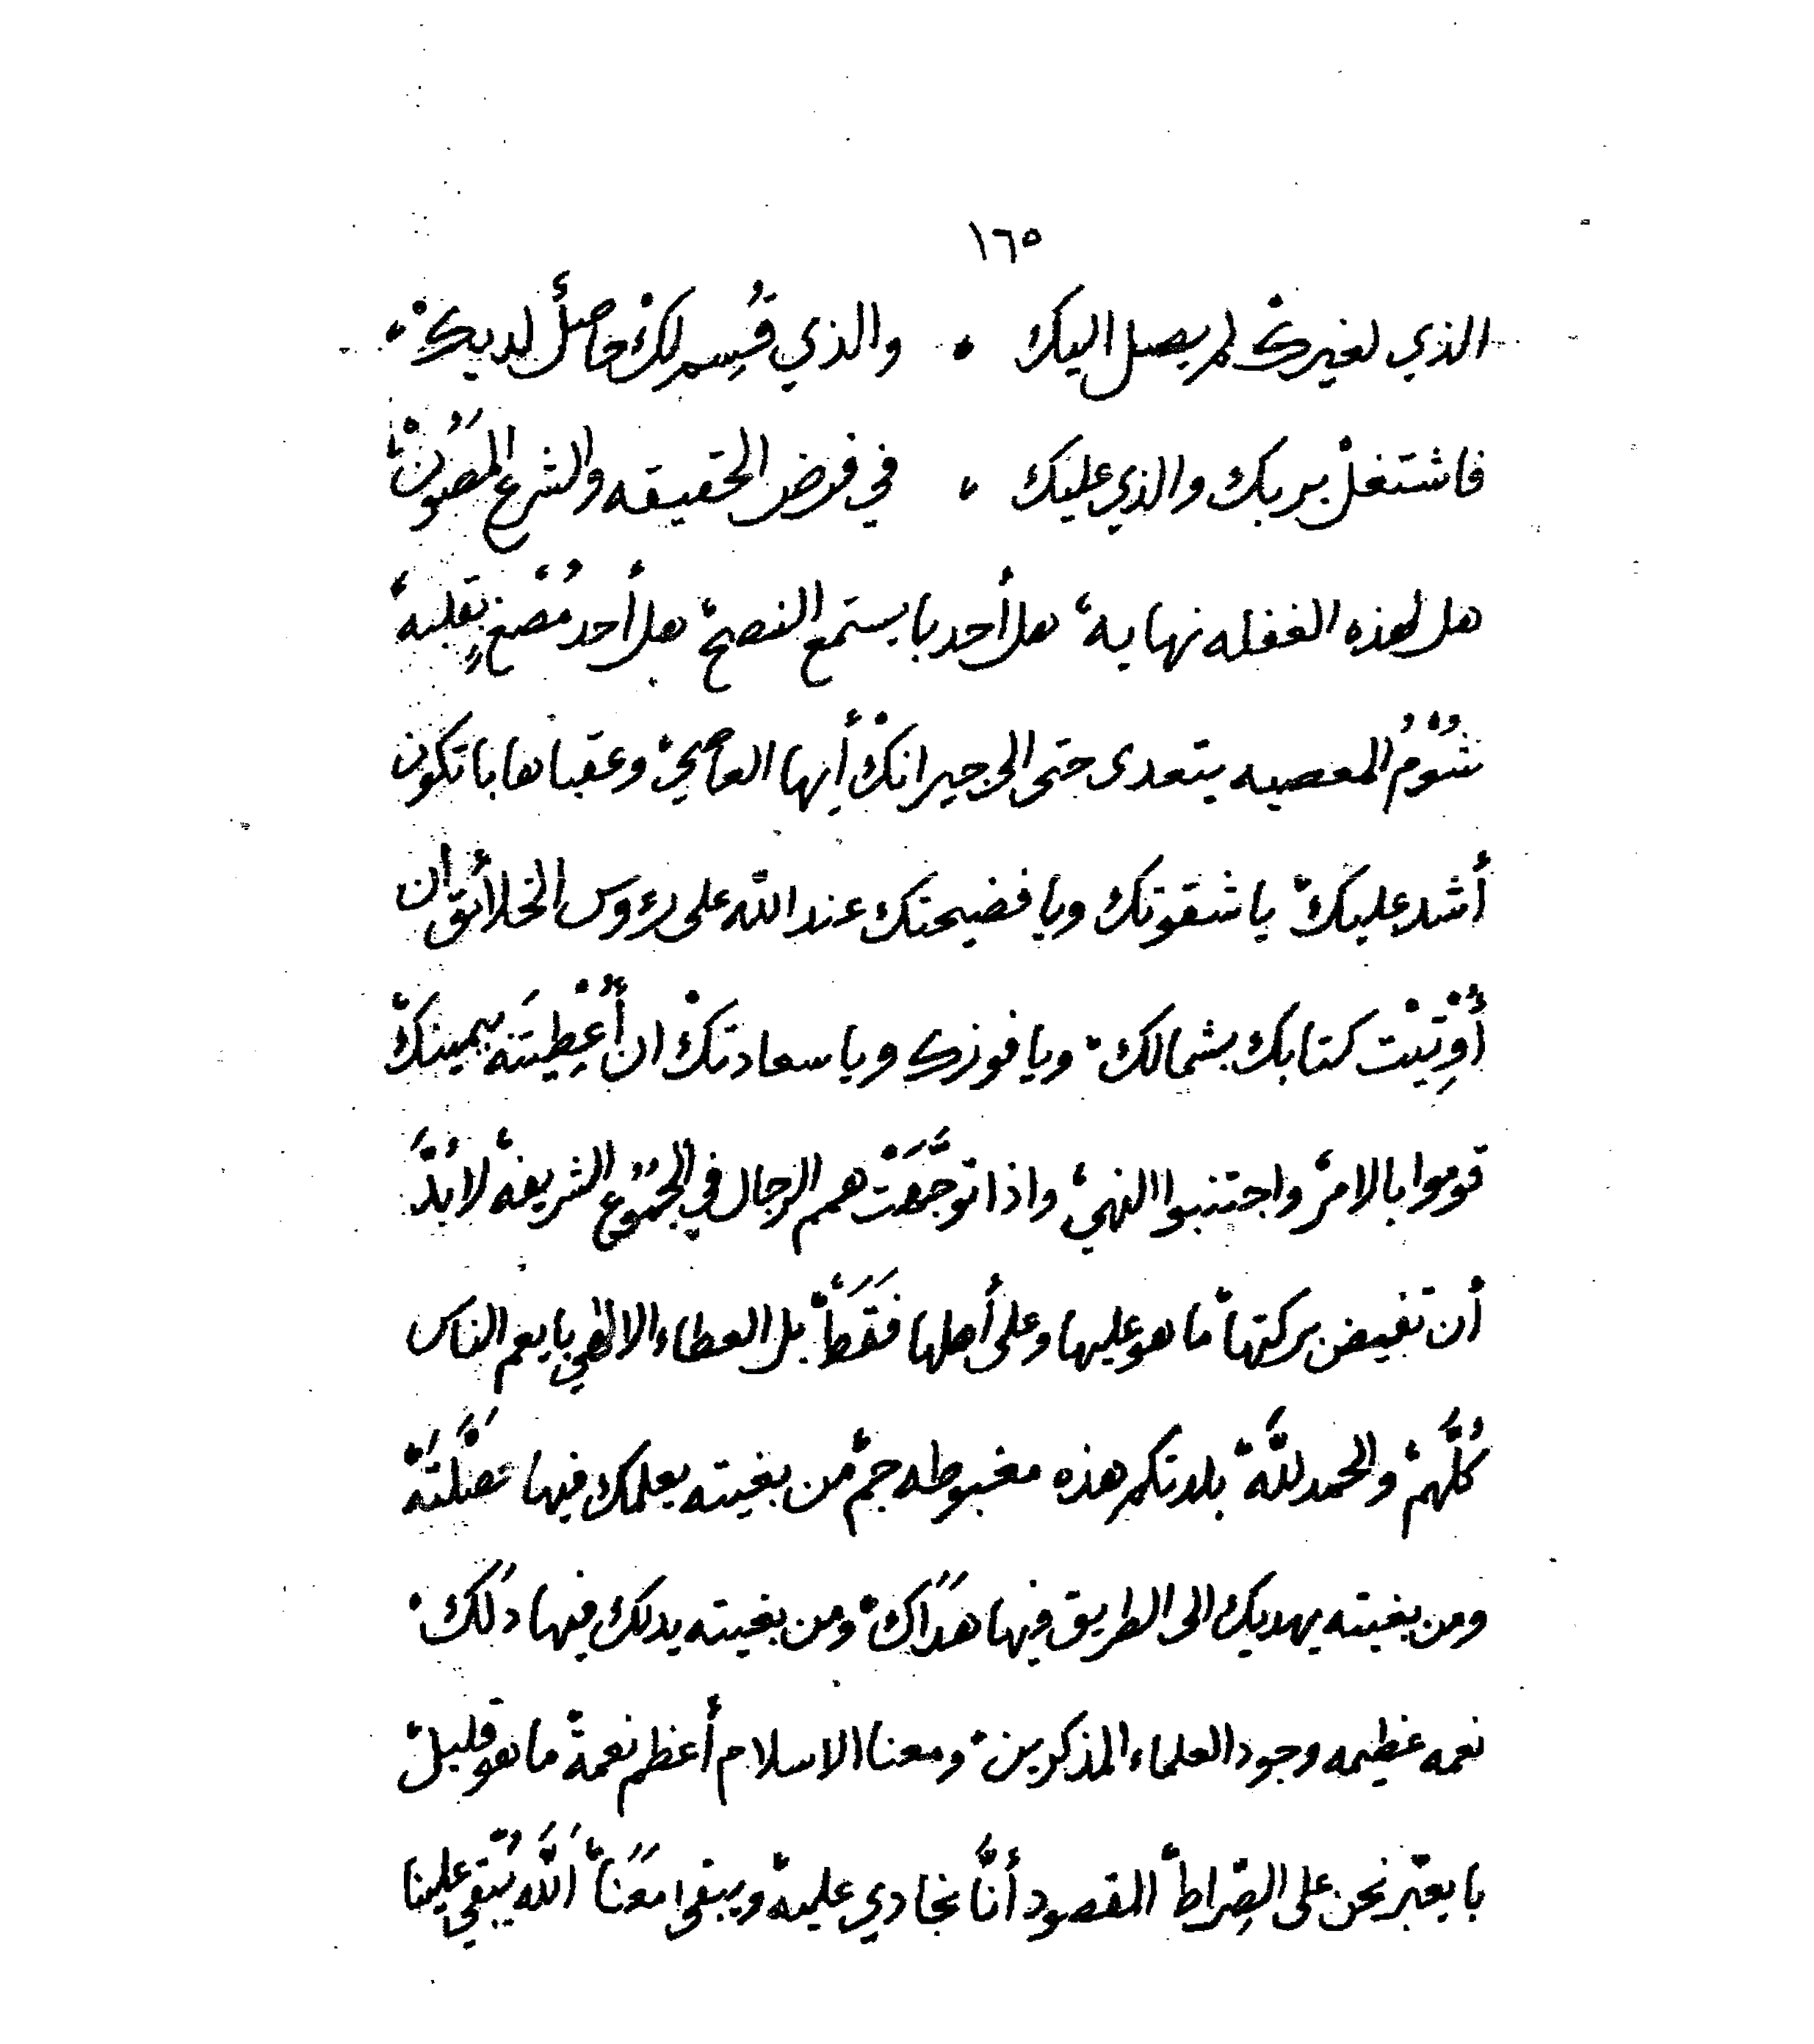 ١٦٥
الذي لغيرك لم يصل اليك ، والذي قُسِم لكْ حاصلْ لديكْ ،
فاشتغلْ بربك والذي عليك ، في فرض الحقيقه والشرع المَصُونْ ،
هل لهذه الغفله نهايهْ هل أحد با يستمع النصحْ هل أحد مُصْغٍ بقلبهْ
شُوْمُ المعصيه يتعدى حتى الى جيرانكْ أيها العاصيْ وعقباها با تكون
أشد عليكْ يا شقوتك ويا فضيحتك عند الله على رؤوس الخلائق ان
أُوْتِيْت كتابك بشمالكْ ويا فوزك ويا سعادتكْ ان أُعْطِيتَه بيمينكْ
قوموا بالامرْ واجتنبوا النهيْ واذا توجَّهَتْ همم الرجال في الجُمُوع الشريفهْ لا بُدَّ
أن تفيض بركتهاْ ما هو عليها وعلى أهلها فَقَطْ بل العطاء الالهي با يعم الناس
كُلَّهمْ والحمد للَّهْ بلدتكم هذه مغبوطه جمْ من بغيته يعلمك فيها حَصَّلْتَهْ
ومن بغيته يهديك الى الطريق فيها هَدَاكْ ومن بغيته يدلك فيها دَلَّكْ
نعمه عظيمه وجود العلماء المذكرينْ ومعنا الاسلام أعظم نعمةْ ما هو قليلْ
با يعبّر نحن على الصِّراطْ المقصود أنَّا نحادي عليهْ ويبقى مَعَناْ اَللَّه يُبْقي علينا